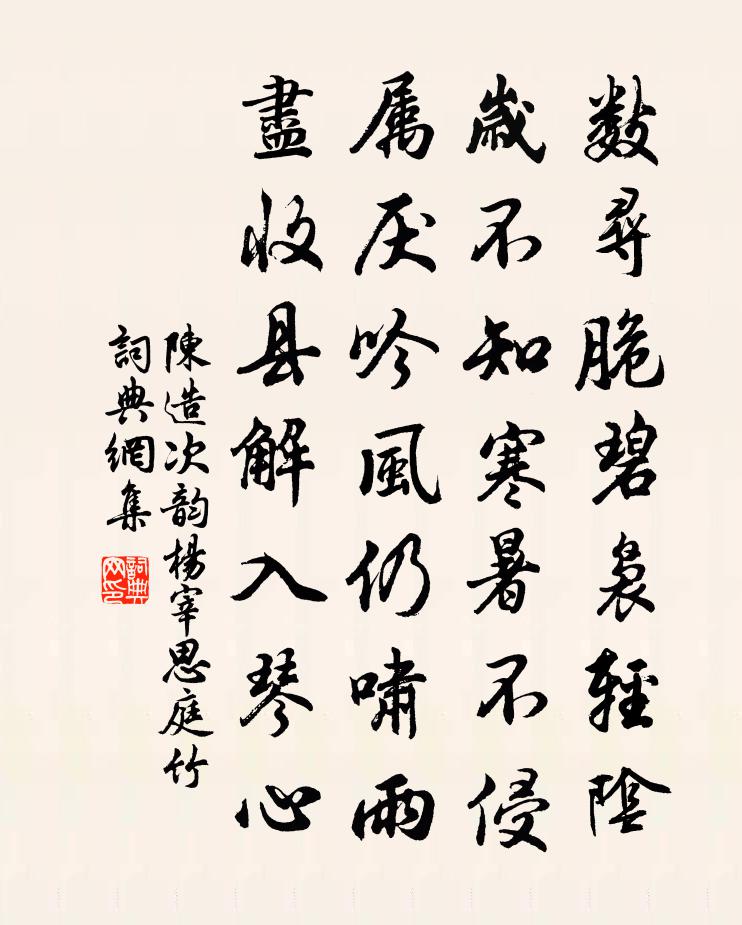 数尋脆碧裊輕陰
歲不知寒暑不侵
属厌吟風仍嘯雨
盡收县解入琴心
陳造次韵楊宰思庭竹
詞典網集
詞典网印